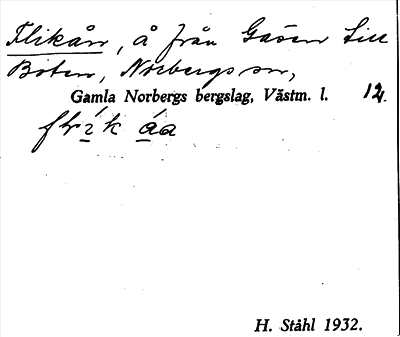 Flikån, å från Gåsen till
Boten, Norbergs sn,
Gamla Norbergs bergslag, Västm. l. 12.
H. Ståhl 1932.